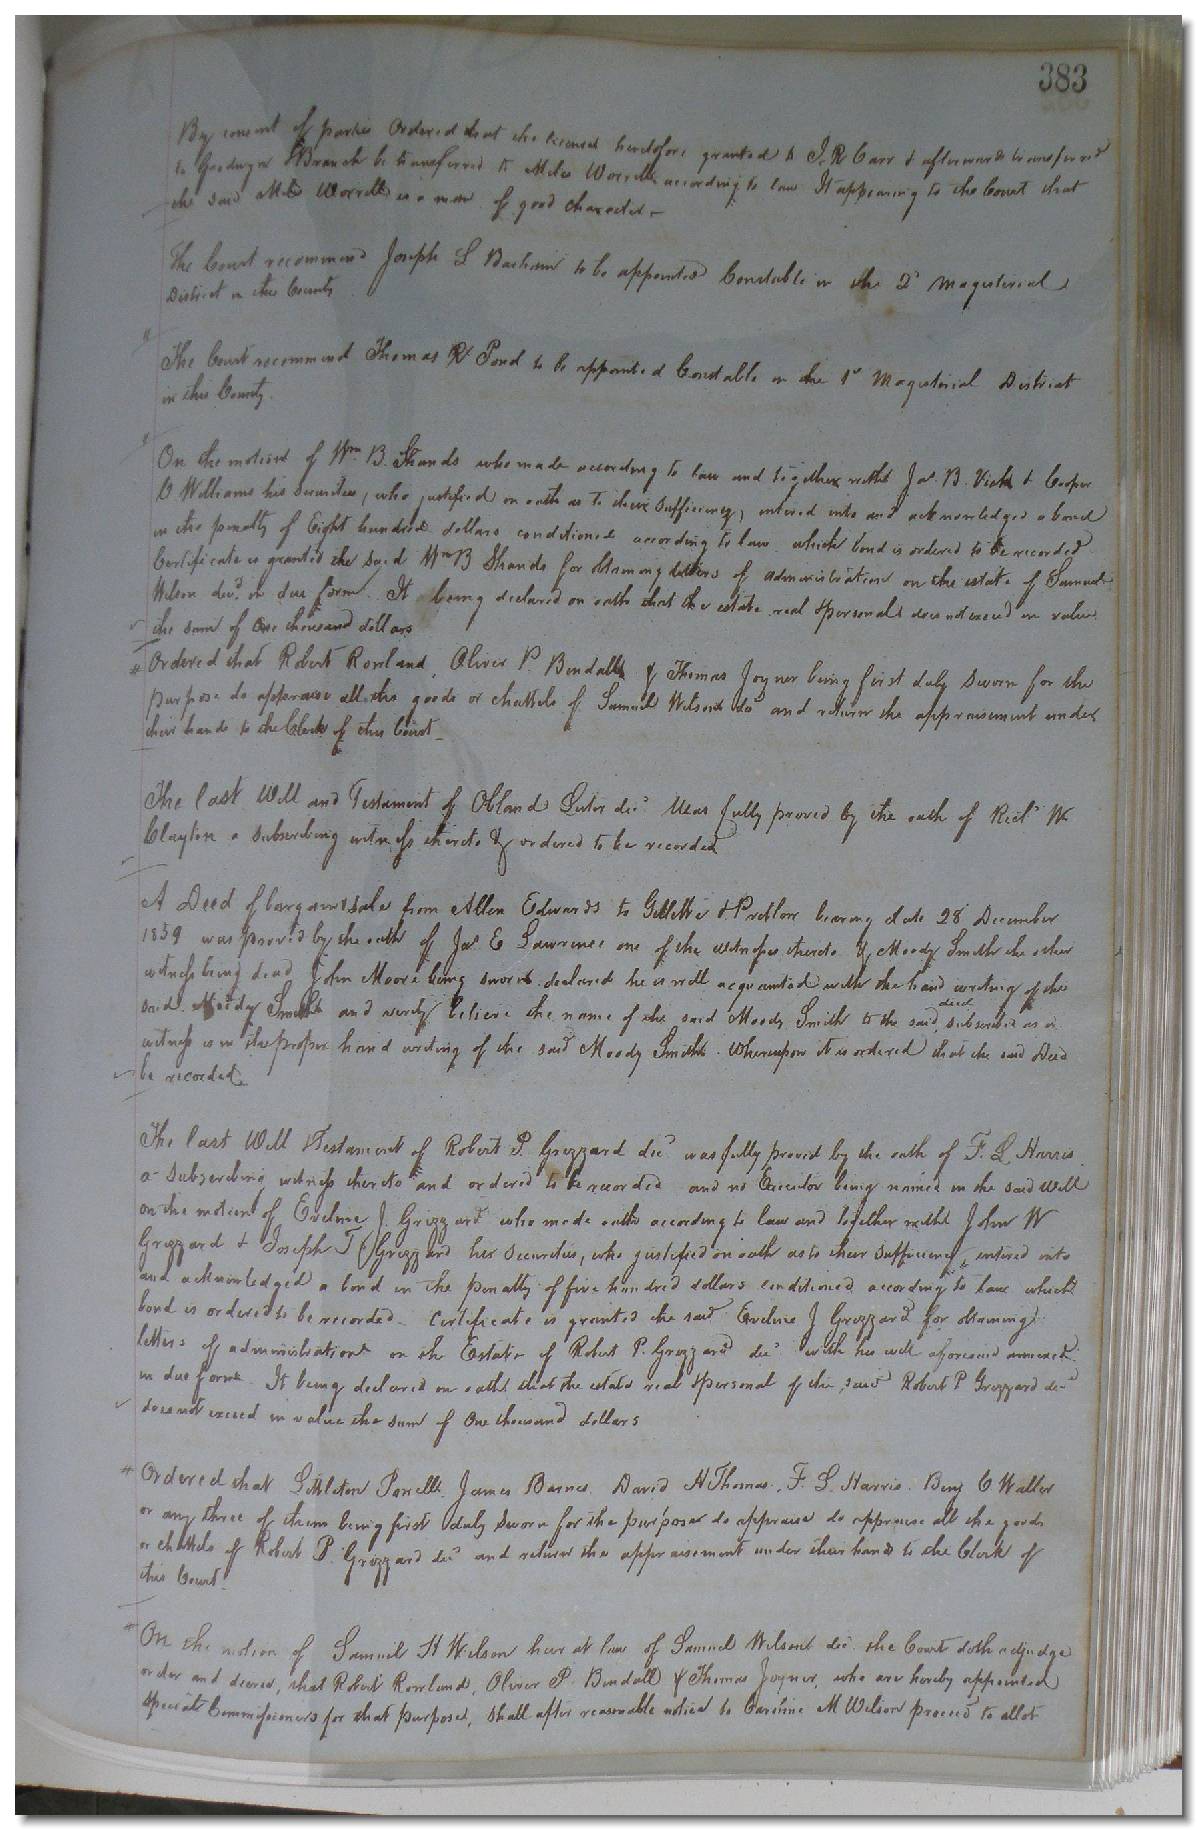 383
By consent of parties Ordered that the license heretofore granted to J. R Carr & afterwards transferred
to Goodwyn & Branch be transferred to Miles Worrell according to law It appearing to the Court that
the said Miles Worrell is a man of good character –
The Court recommend Joseph L to be appointed Constable in the 2d Magisterial
District in this County
The Court recommend Thomas R Pond to be appointed Constable in the 1st Magisterial District
in this County.
On the motion of Wm B. Shands who made according to law and together with Jas B. Vick & Cooper
D Williams his securities, who justified on oath as to their sufficiency, entered into and acknowledged a bond
in the penalty of Eight hundred dollars conditioned according to law which bond is ordered to be recorded
Certificate is granted the said Wm B Shands for obtaining letters of administration on the estate of Samuel
Wilson decd. in due form. It being declared on oath that the estate real & personal does not exceed in value
the sum of One thousand dollars
Ordered that Robert Rowland, Oliver P. Bendall & Thomas Joyner being first duly sworn for the
purpose do appraise all the goods or chattels of Samuel Wilson decd and return the appraisement under
their hands to the Clerk of this Court –
The last Will and Testament of Obland Luter decd Was fully proved by the oath of Richd W
Clayton a subscribing witness thereto & ordered to be recorded
A Deed of bargain & sale from Allen Edwards to Gillette & Pretlow bearing date 28 December
1859 was proved by the oath of Jas E Lawrence one of the witnesses thereto & Moody Smith the other
witness being dead John Moore being sworn declared he is well acquainted with the hand writing of the
said Moody Smith and verily believe the name of the said Moody Smith to the said deed subscribed as a
witness is in the proper hand writing of the said Moody Smith. Whereupon it is ordered that the said Deed
be recorded.
The last Will & Testament of Robert P. Grizzard decd was fully proved by the oath of F. L Harris
a subscribing witness thereto and ordered to be recorded and no Executor being named in the said Will
on the motion of Eveline J. Grizzard who made oath according to law and together with John W
Grizzard & Joseph T Grizzard her securities, who justified on oath as to their sufficiency, entered into
and acknowledged a bond in the penalty of five hundred dollars conditioned according to law which
bond is ordered to be recorded – Certificate is granted the said Eveline J Grizzard for obtaining
letters of administration on the Estate of Robert P. Grizzard decd with his will aforesaid annexed
in due form. It being declared on oath that the estate real & personal of the said Robert P Grizzard decd
does not exceed in value the sum of One thousand dollars
Ordered that Littleton James Barnes. David H Thomas, F. L. Harris. Benj C Waller
or any three of them being first duly sworn for the purpose do appraise do appraise all the goods
or chattels of Robert P. Grizzard decd and return the appraisement under their hands to the Clerk of
this Court.
On the motion of Samuel H Wilson heir at law of Samuel Wilson decd the Court doth adjudge
order and decree, that Robert Rowland, Oliver P. Bendall & Thomas Joyner, who are hereby appointed
Special Commissioners for that purpose, shall after reasonable notice to Caroline M Wilson proceed to allot